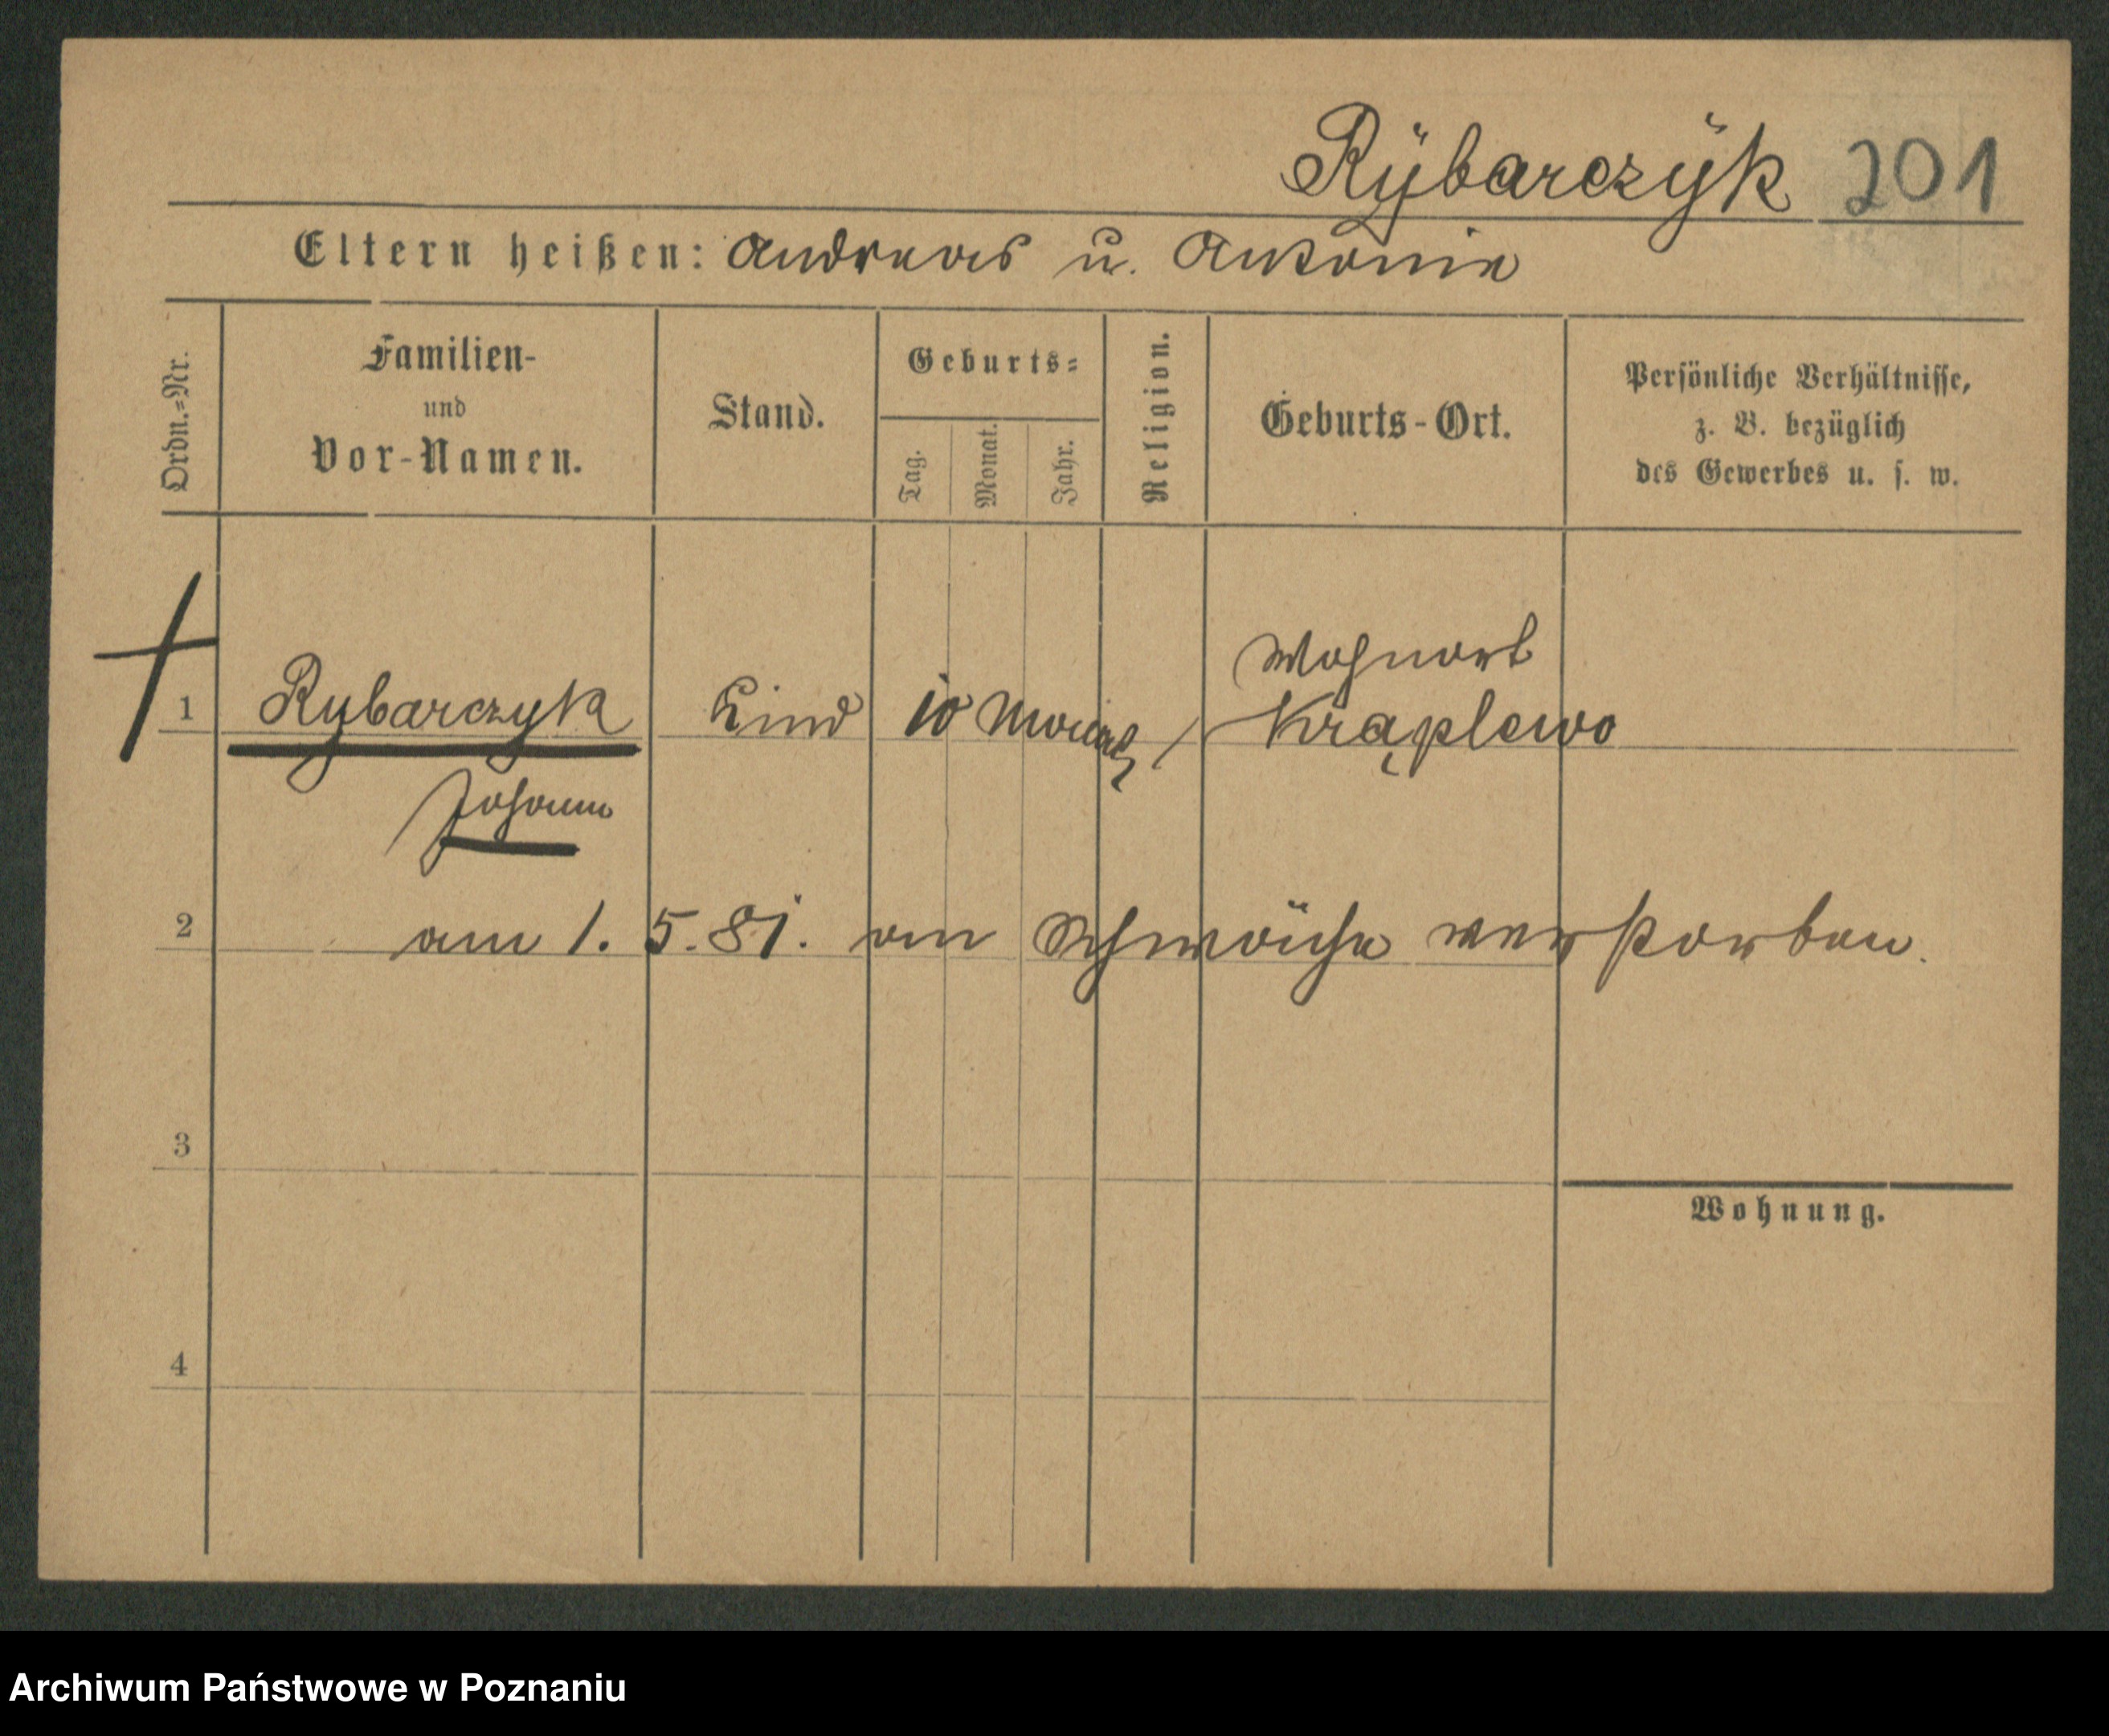 Rÿbarczÿk 201
Eltern heißen: Andreas u. Antonie
Ordn.=Nr.
Familien-
und
Vor-Namen.
Stand.
Geburts=
Tag.
Monat.
Jahr.
Religion.
Geburts-Ort.
Persönliche Verhältnisse,
z. B. bezüglich
des Gewerbes u. s. w.
Wohnort
1 Rybarczyk Kind 10 Kraplewo
Johann
2 am 1. 5. 81. an Schwäche verstorben.
3
Wohnung.
4
Archiwum Państwowe w Poznaniu